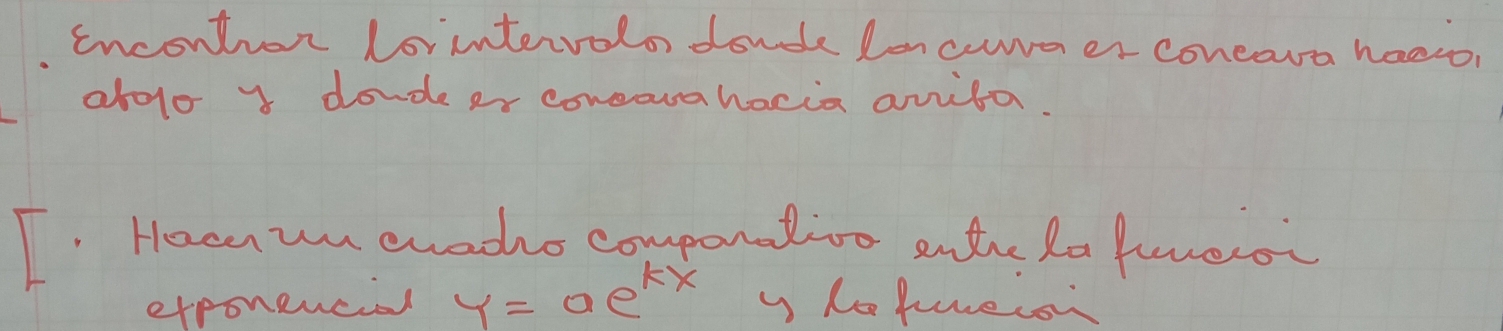 . Encontrar los intervalos donde la curva es concava hacia
abajo y donde es concava hacia arriba.
[ . Hacer un cuadro comparativo entre la función
exponencial y = ae^{kx} y la función